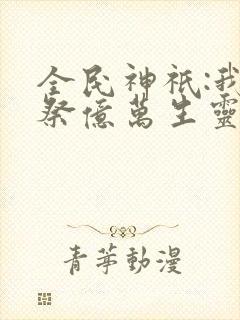 全民神祇:我
祭億萬生靈
青葶動漫